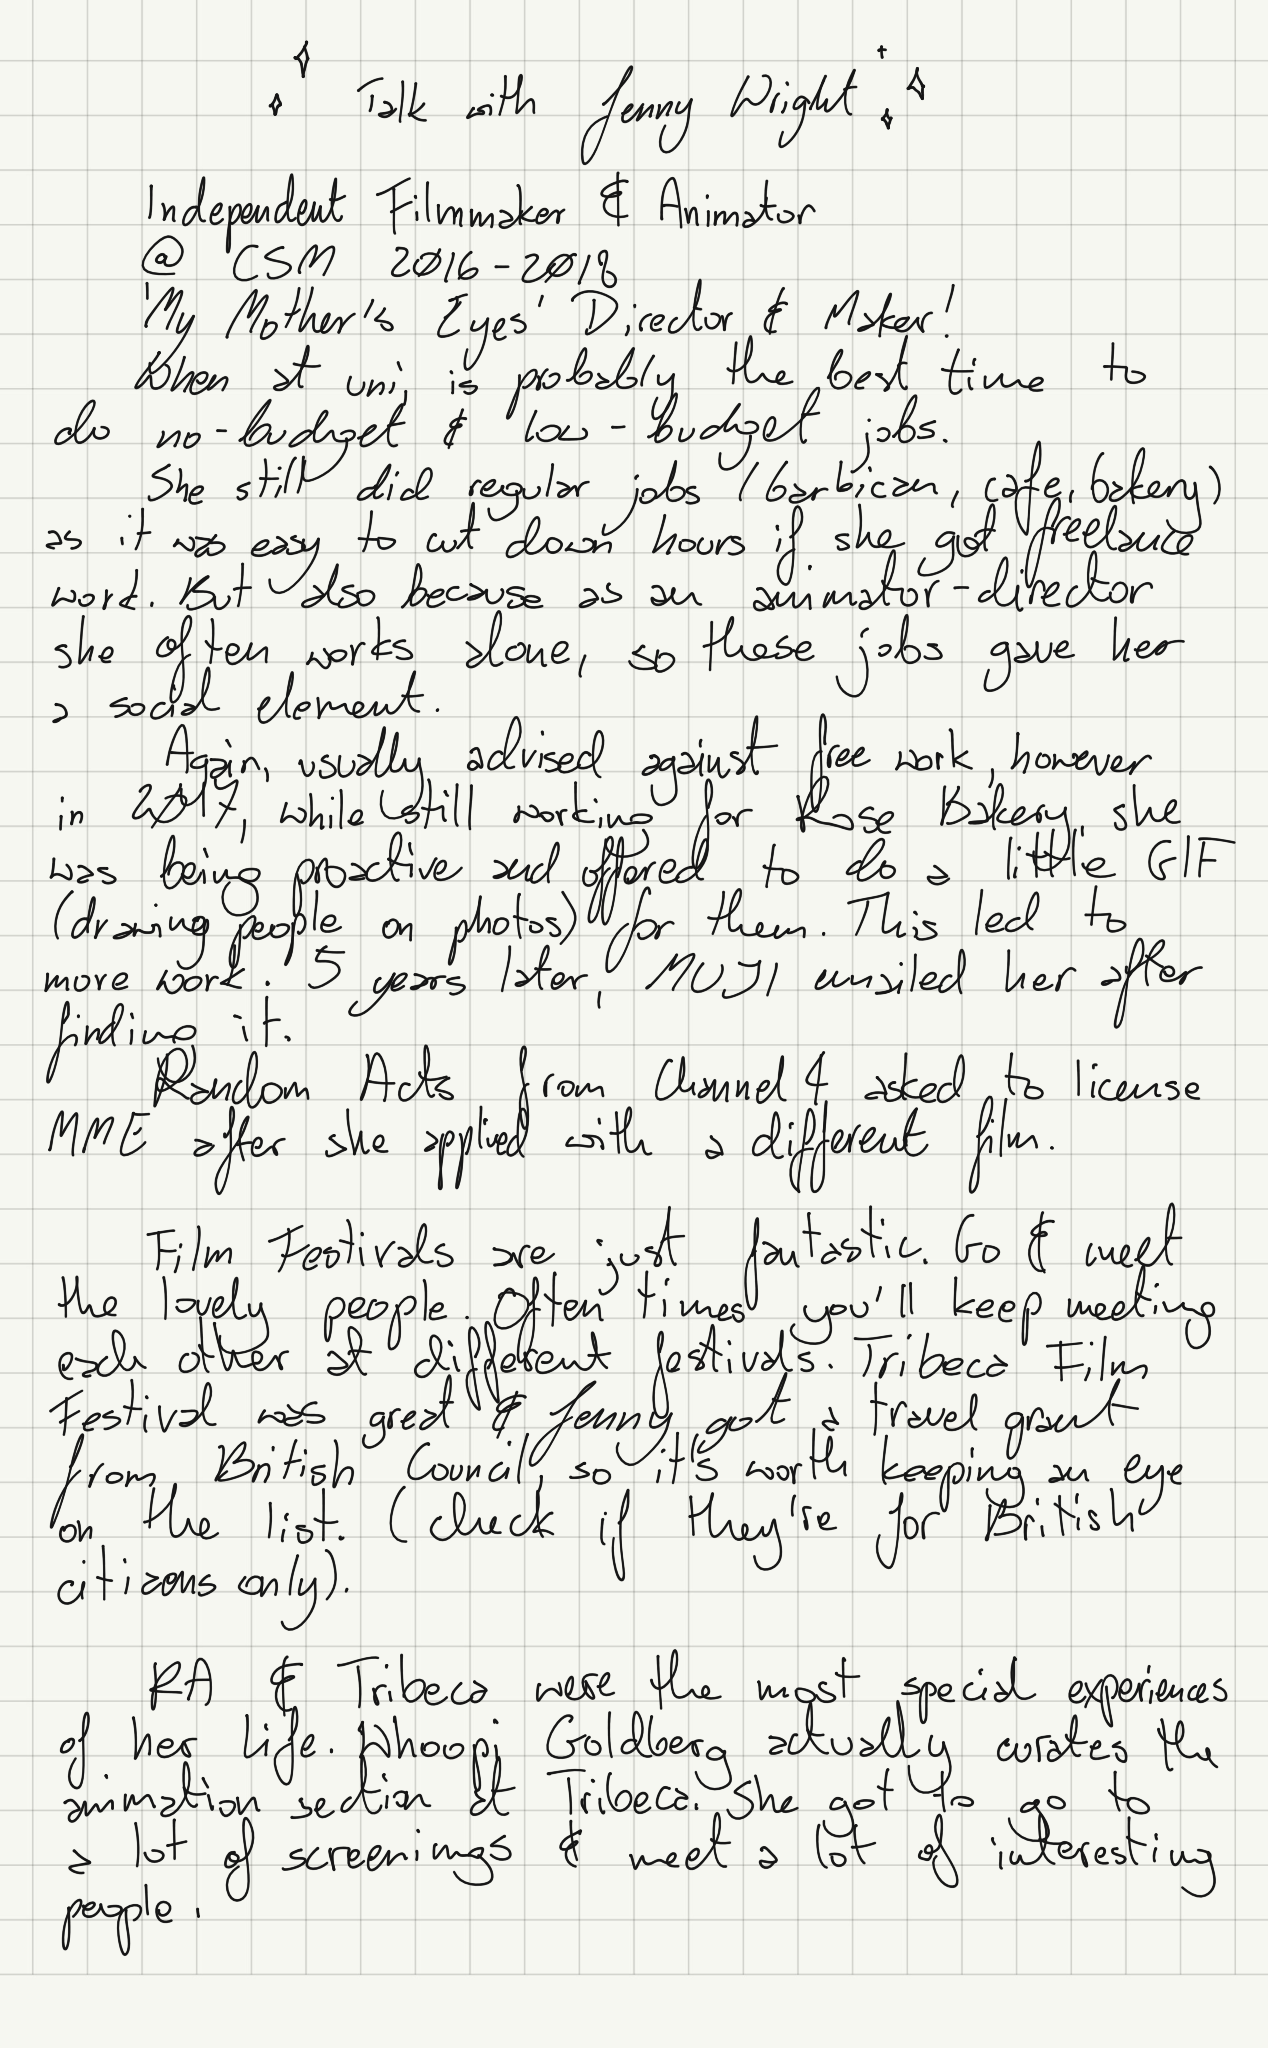 Talk with Jenny Wright
Independent Filmmaker & Animator
@ CSM 2016-2018
'My Mother's Eyes' Director & Maker!
When at uni, is probably the best time to
do no-budget & low-budget jobs.
She still did regular jobs (barbican, cafe, bakery)
as it was easy to cut down hours if she got freelance
work. But also because as an animator-director
she often works alone, so these jobs gave her
a social element.
Again, usually advised against free work, however
in 2017, while still working for Rose Bakery, she
was being proactive and offered to do a little GIF
(drawing people on photos) for them. This led to
more work. 5 years later, MUJI emailed her after
finding it.
Random Acts from Channel 4 asked to license
MME after she applied with a different film.
Film Festivals are just fantastic. Go & meet
the lovely people. Often times you'll keep meeting
each other at different festivals. Tribeca Film
Festival was great & Jenny got a travel grant
from British Council, so it's worth keeping an eye
on the list. (check if they're for British
citizens only).
RA & Tribeca were the most special experiences
of her life. Whoopi Goldberg actually curates the
animation section at Tribeca. She got to go to
a lot of screenings & meet a lot of interesting
people.